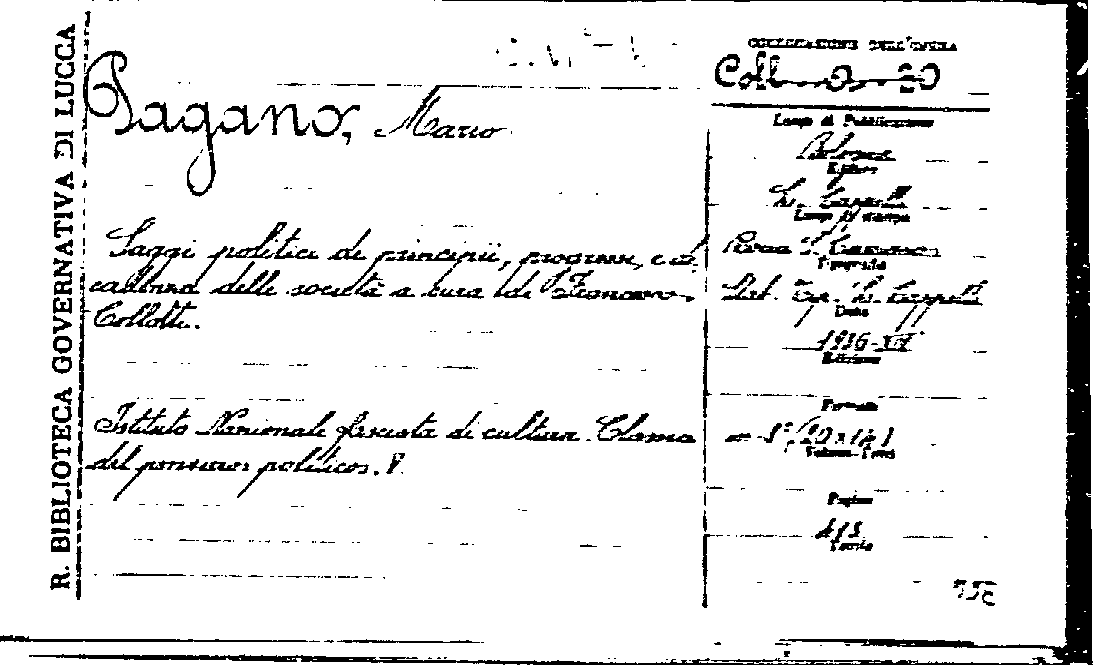 R. BIBLIOTECA GOVERNATIVA DI LUCCA
COLLOCAZIONE DELL'OPERA
Coll
Pagano, Mario
Luogo di Pubblicazione
Bologna
Editore
L. Cappelli
Luogo di stampa
Rocca S. Casciano
Tipografia
Stab. Tip. L. Cappelli
Data
1936-XIV
Edizione
Formato
in-8° (20x14)
Volumi-Tomi
Pagine
Tavole
Saggi politici dei principii, progressi, e de-
cadenza delle società a cura di Francesco
Collotti.
Istituto Nazionale fascista di cultura. Classici
del pensiero politico. 8.